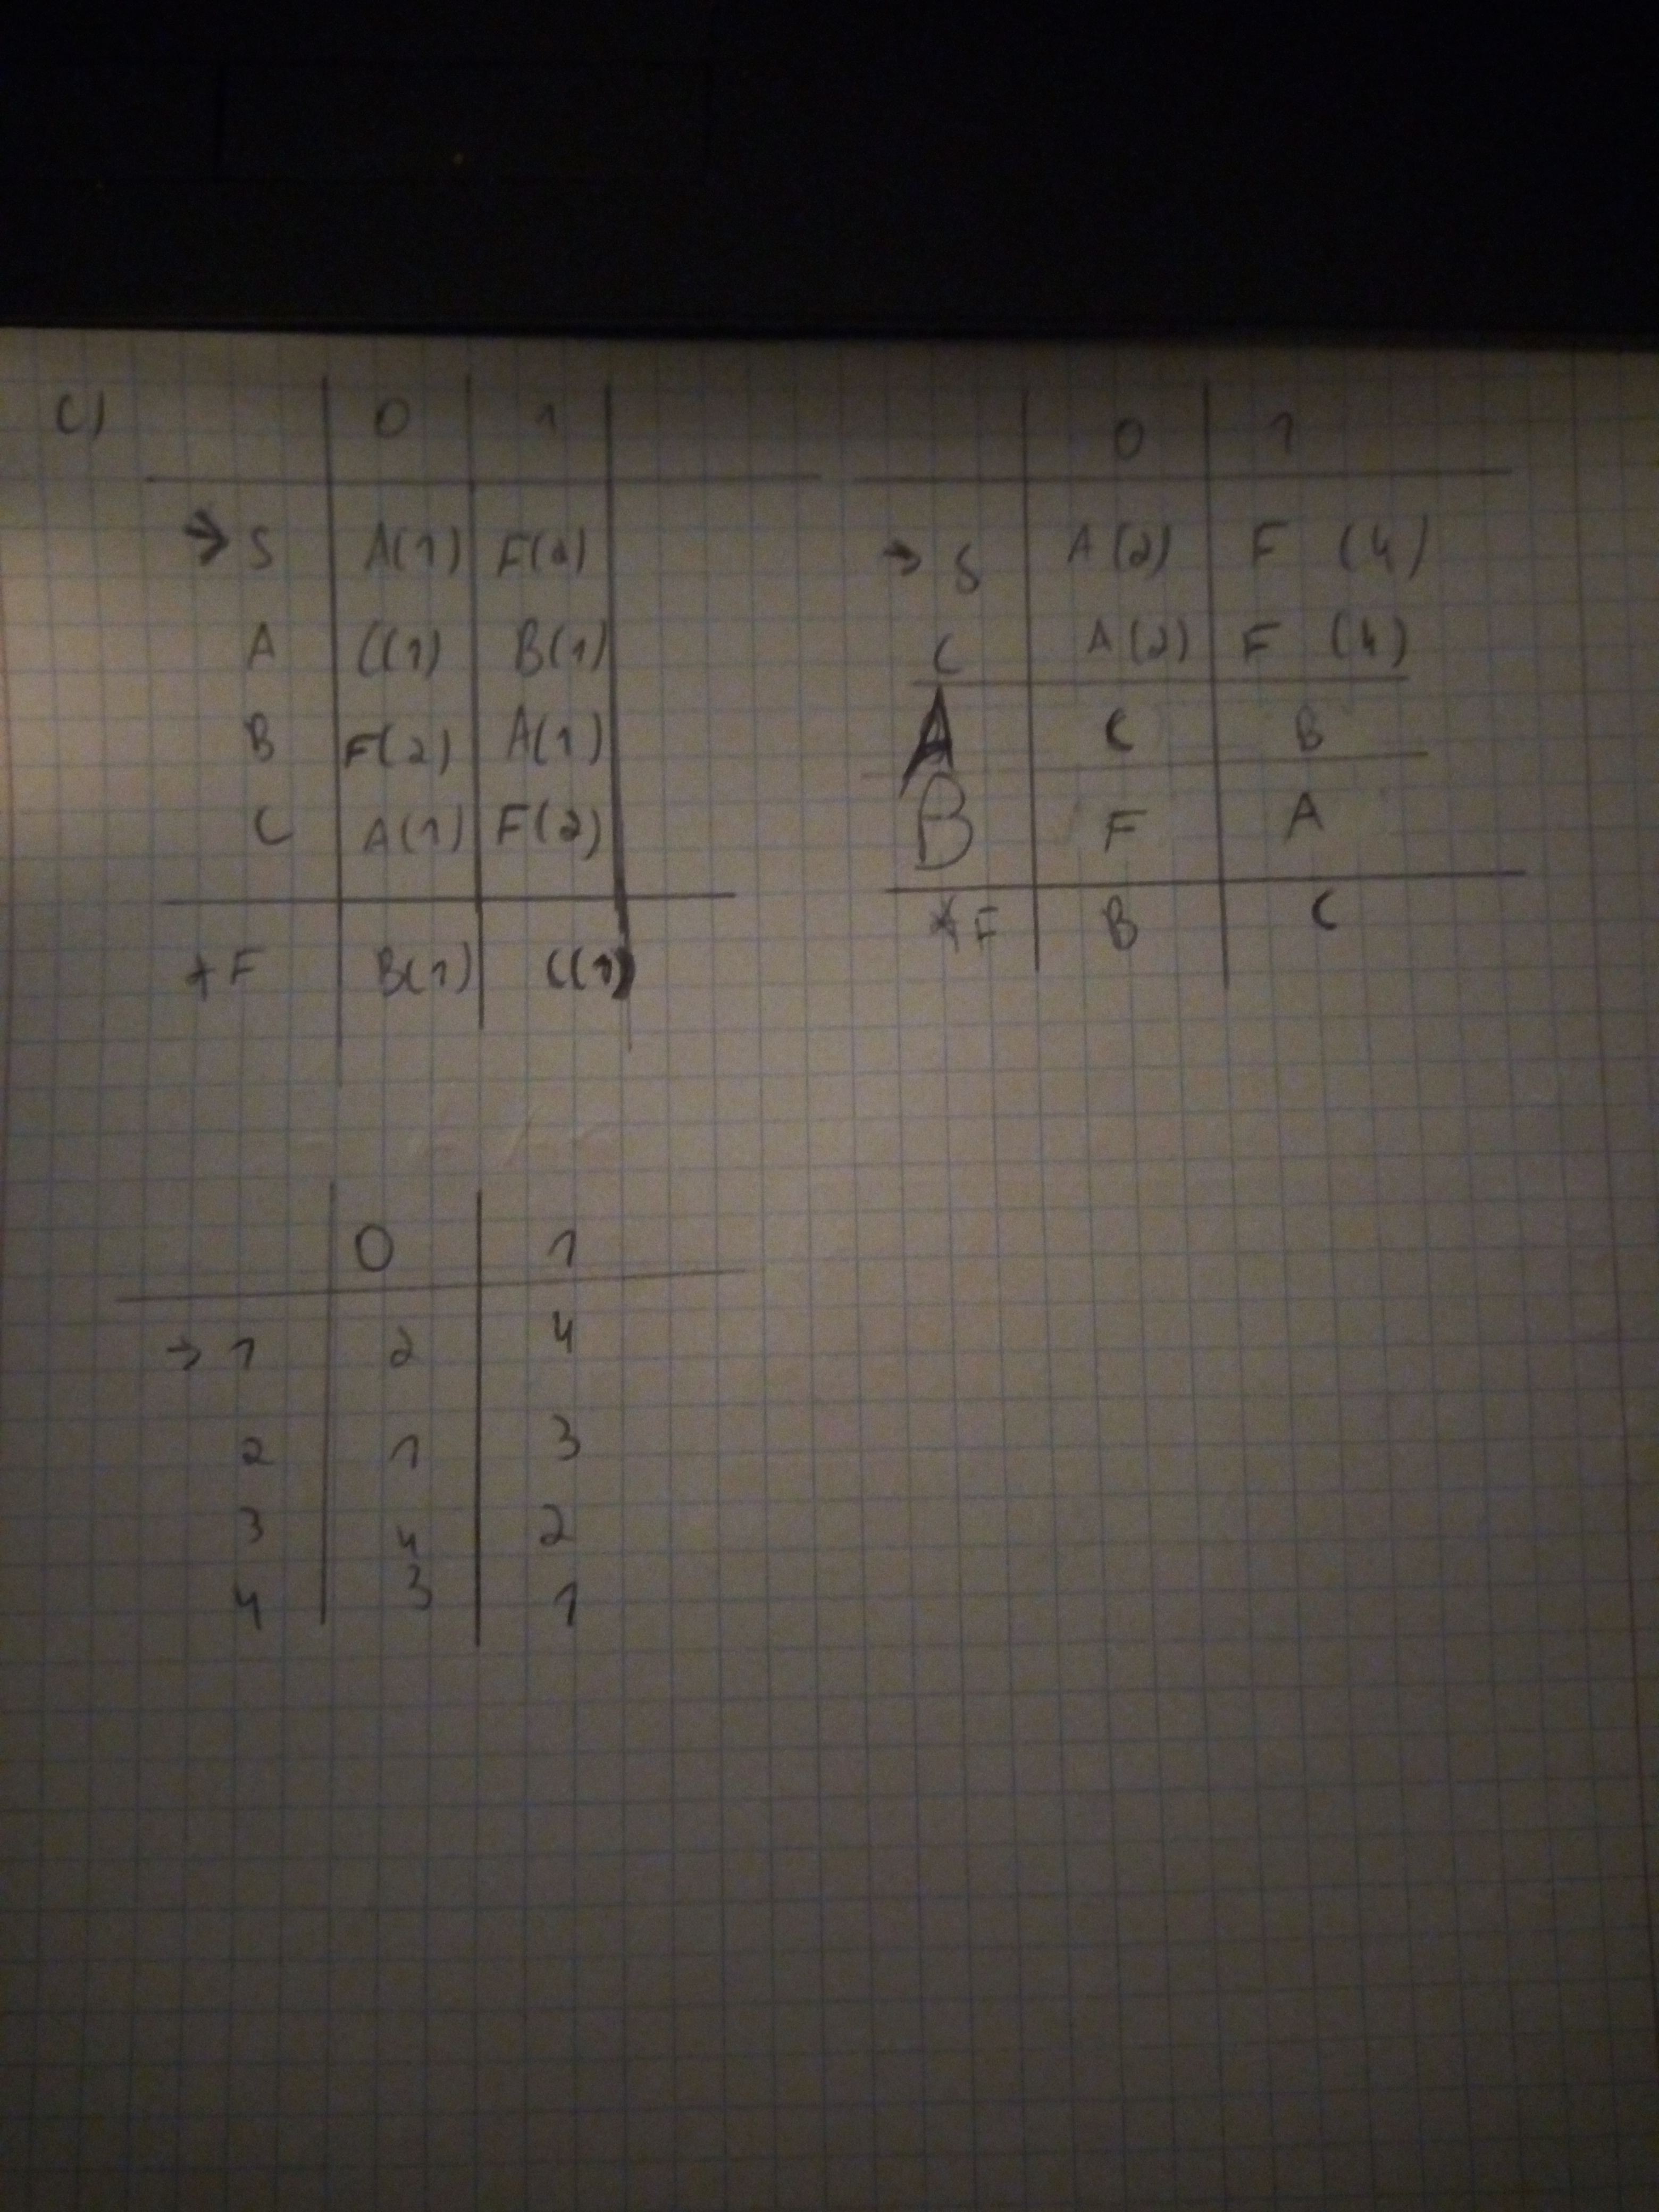 c) 0 1
→ S A(1) F(2)
A C(1) B(1)
B F(2) A(1)
C A(1) F(2)
* F B(1) C(1)
0 1
→ S A(2) F (4)
C A(2) F (4)
A C B
B F A
* F B C
0 1
→ 1 2 4
2 1 3
3 4 2
4 3 1